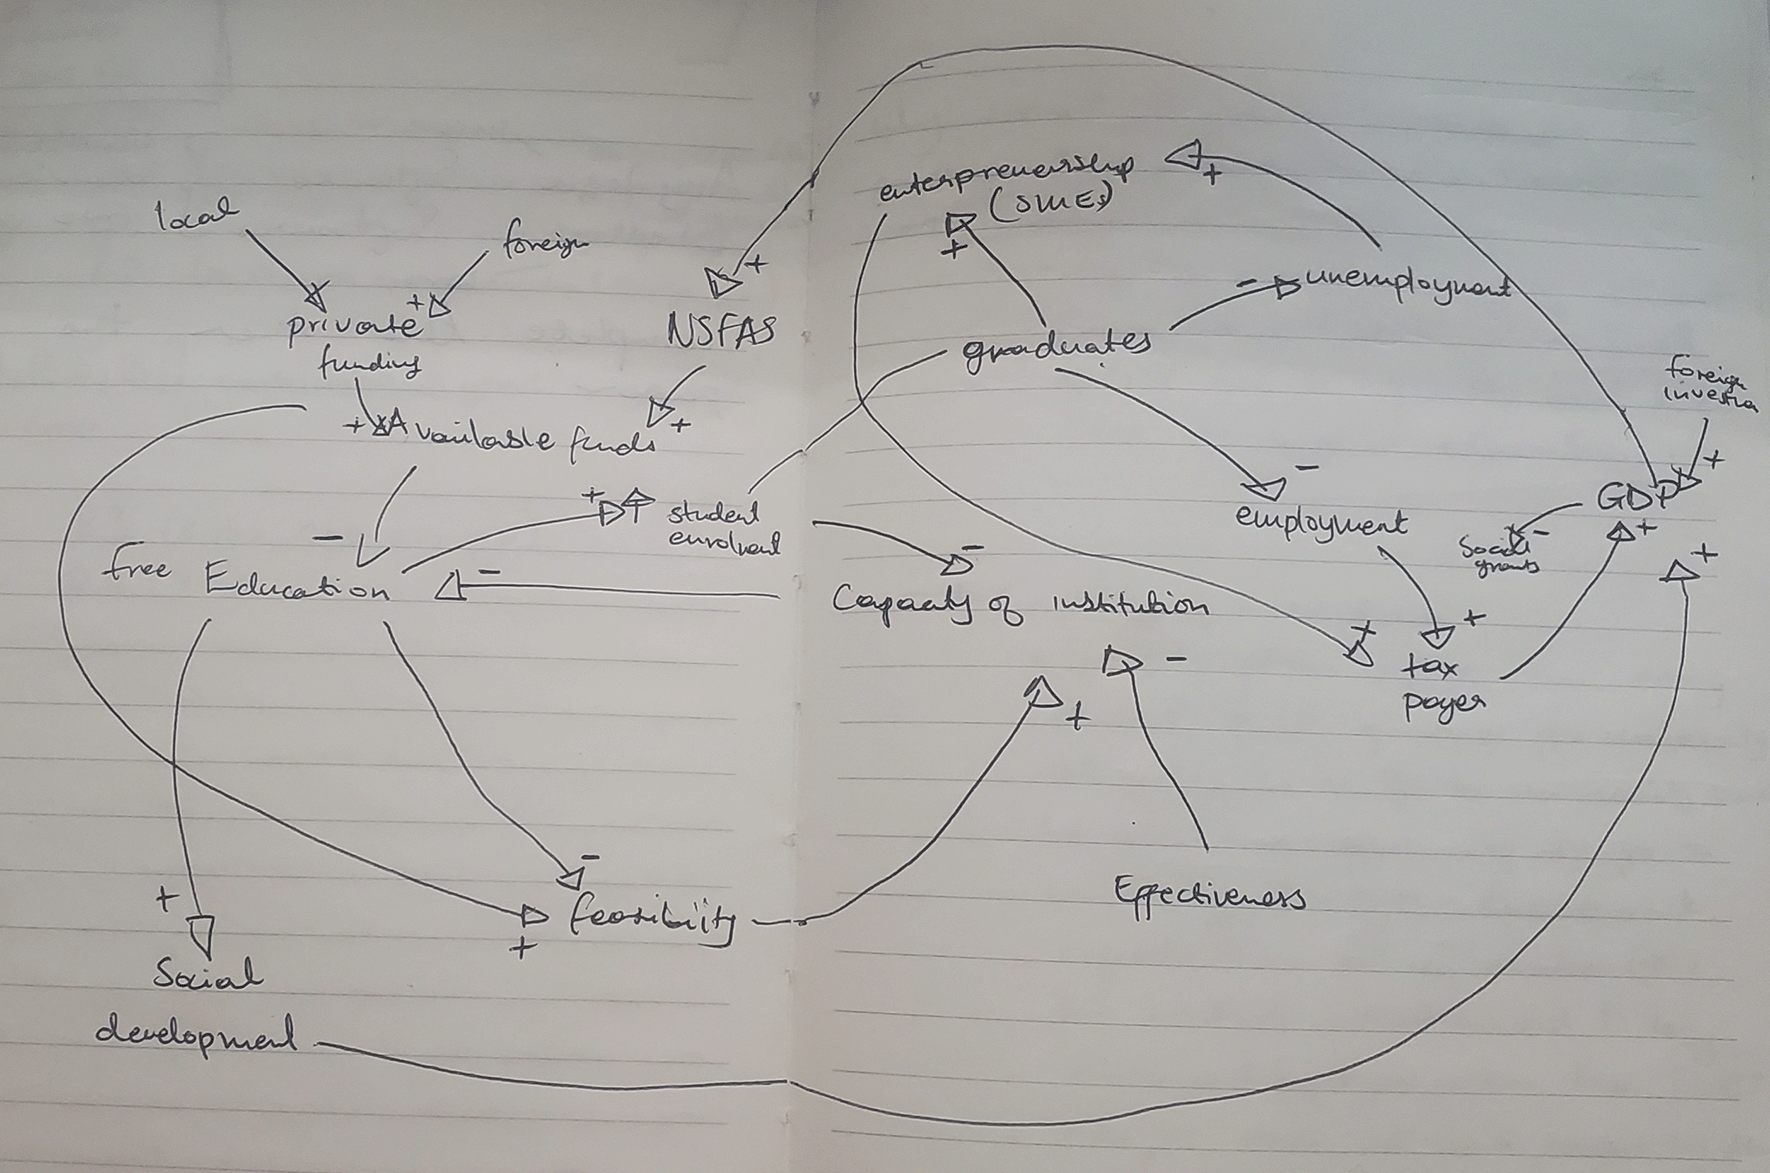 local
foreign
+
private
funding
+
NSFAS
+
Available funds
+
enterpreneurship
(SMEs)
+
+
graduates
-
unemployment
foreign
+
GDP
-
employment
Social
grants
+
+
-
free Education
+
student
enrolment
-
-
Capacity of institution
+
+
tax
payer
-
+
Effectiveness
-
feasibility
+
+
Social
development